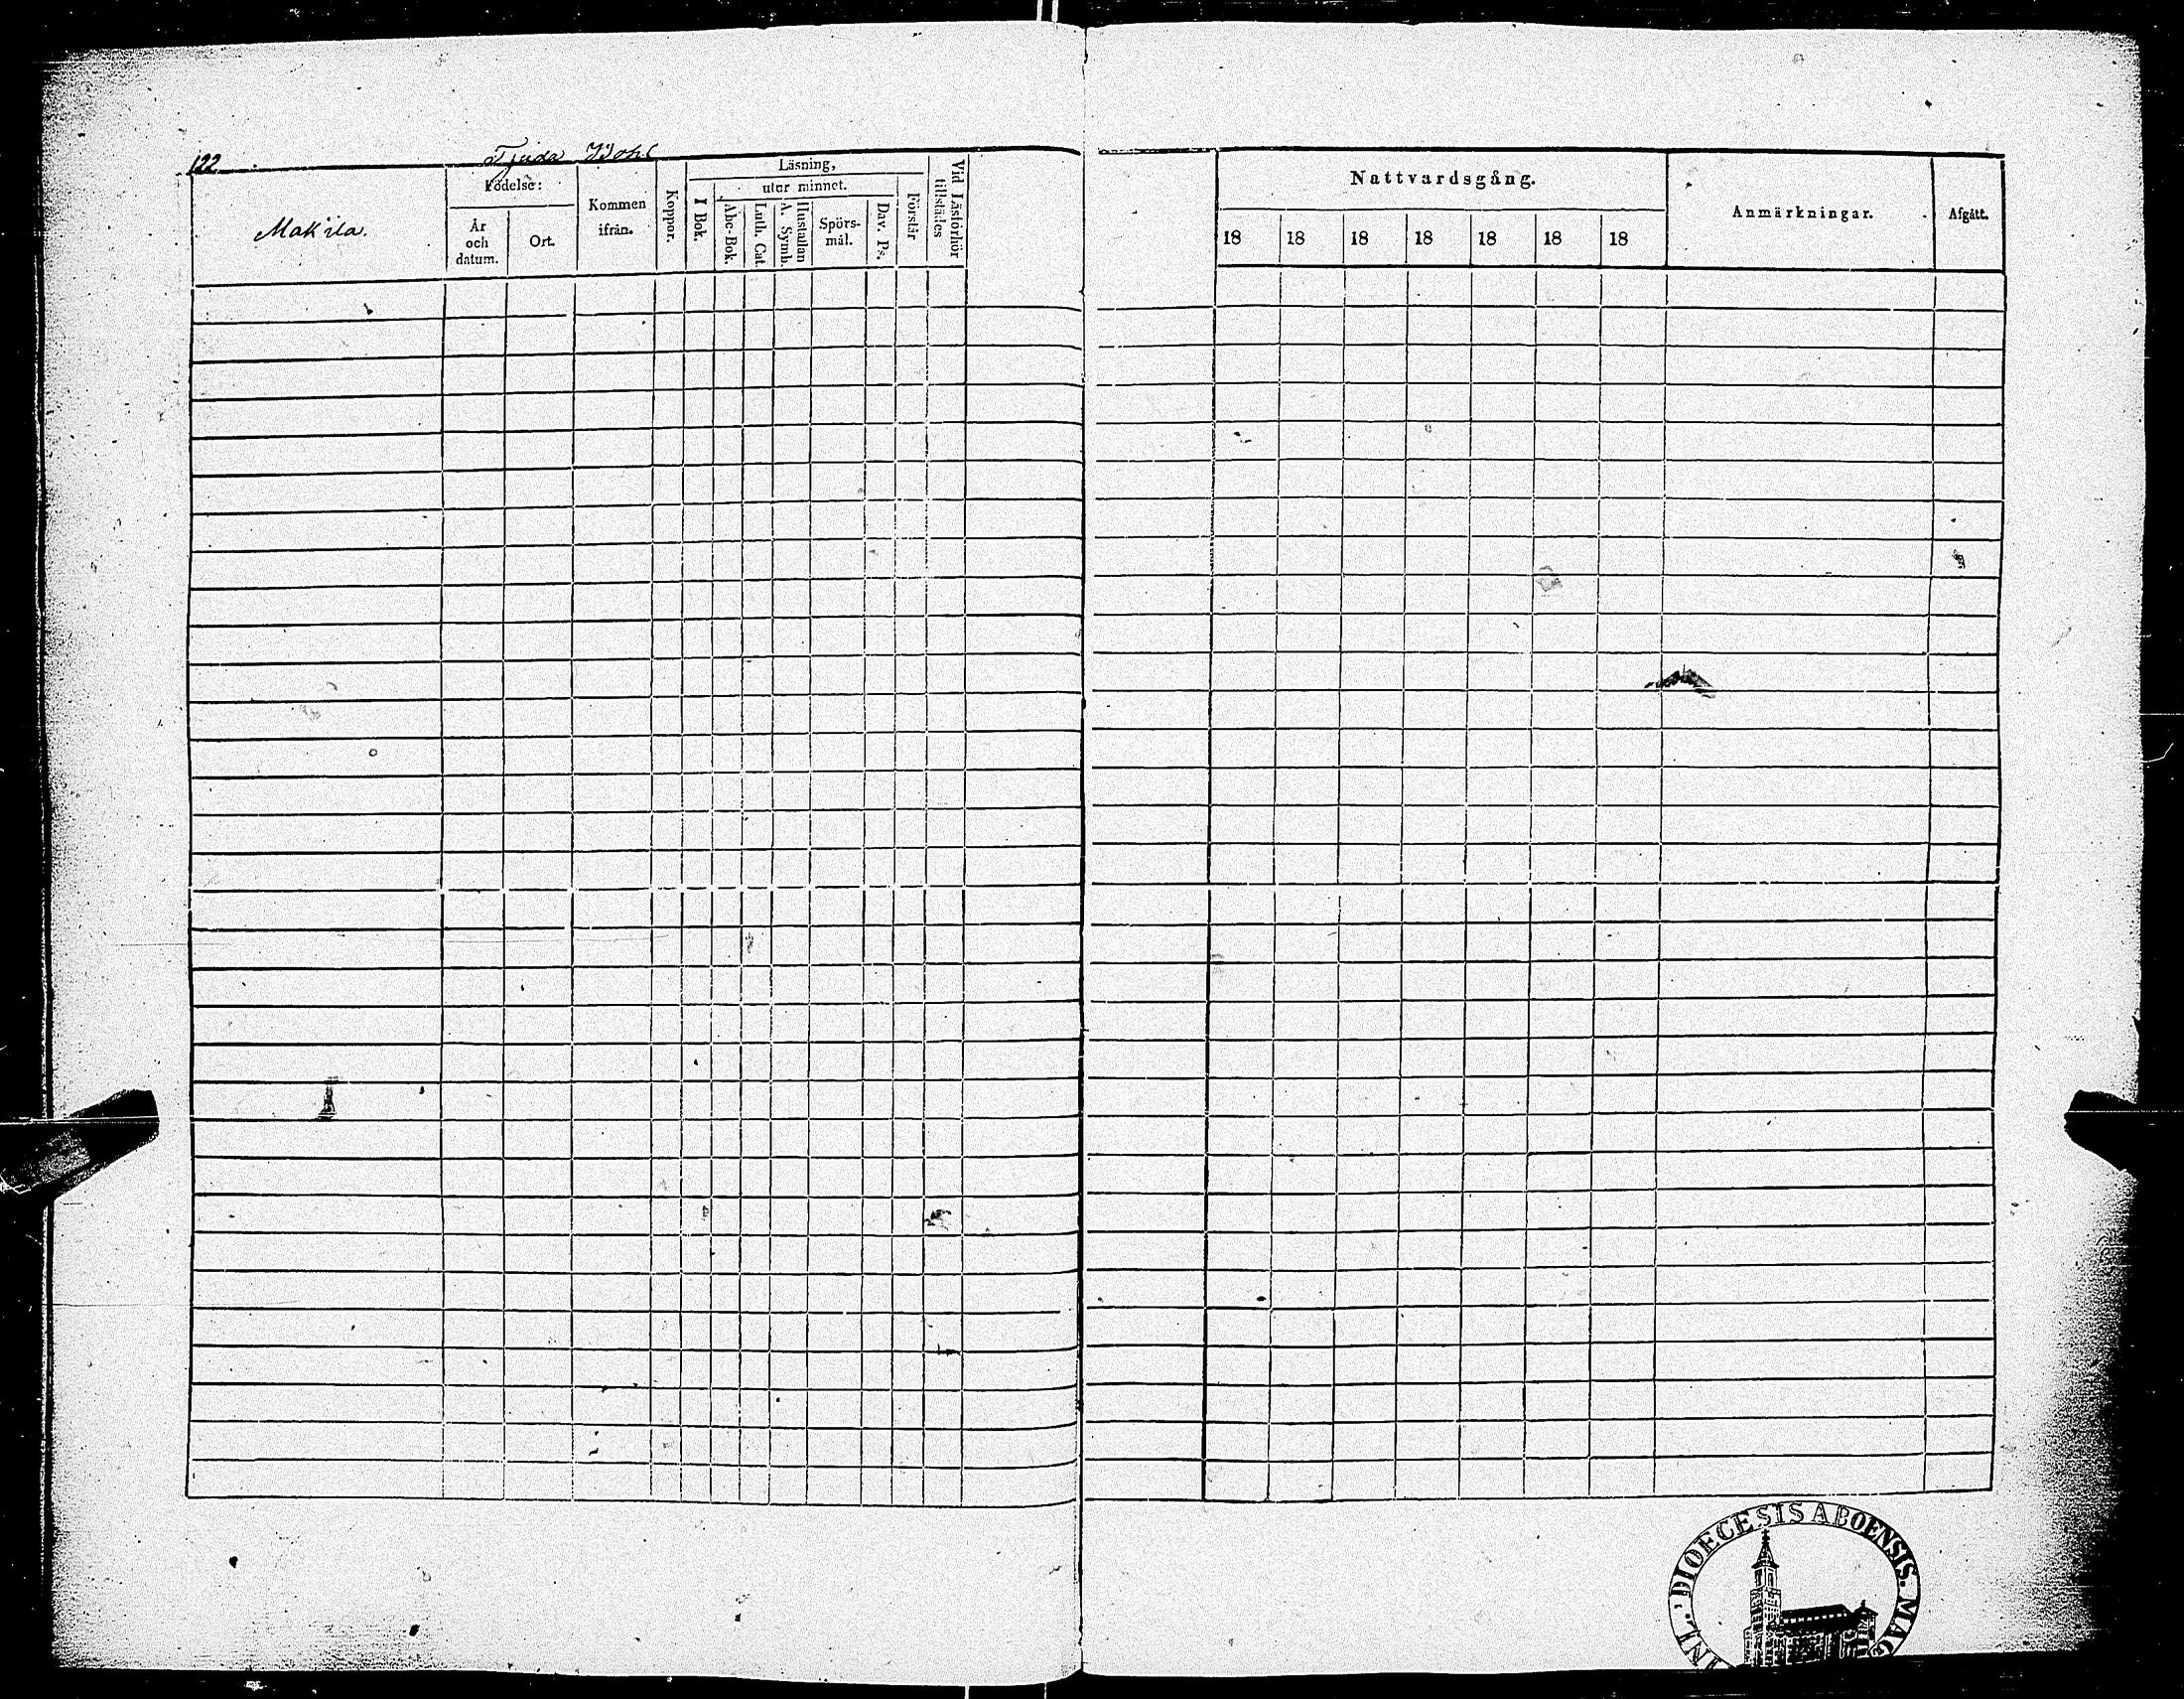 122
Tjuda
Makila.
Födelse:
År
och
datum.
Ort.
Kommen
ifrån.
Koppor.
Läsning,
I Bok.
utur minnet.
Abc-Bok.
Luth. Cat.
Hustaflan
A. Symb.
Spörs-
mål.
Dav. Ps.
Förstår
Vid Läsförhör
tillstädes
Nattvardsgång.
18 18 18 18 18 18 18
Anmärkningar.
Afgått.
DIOECESIS ABOENSIS.